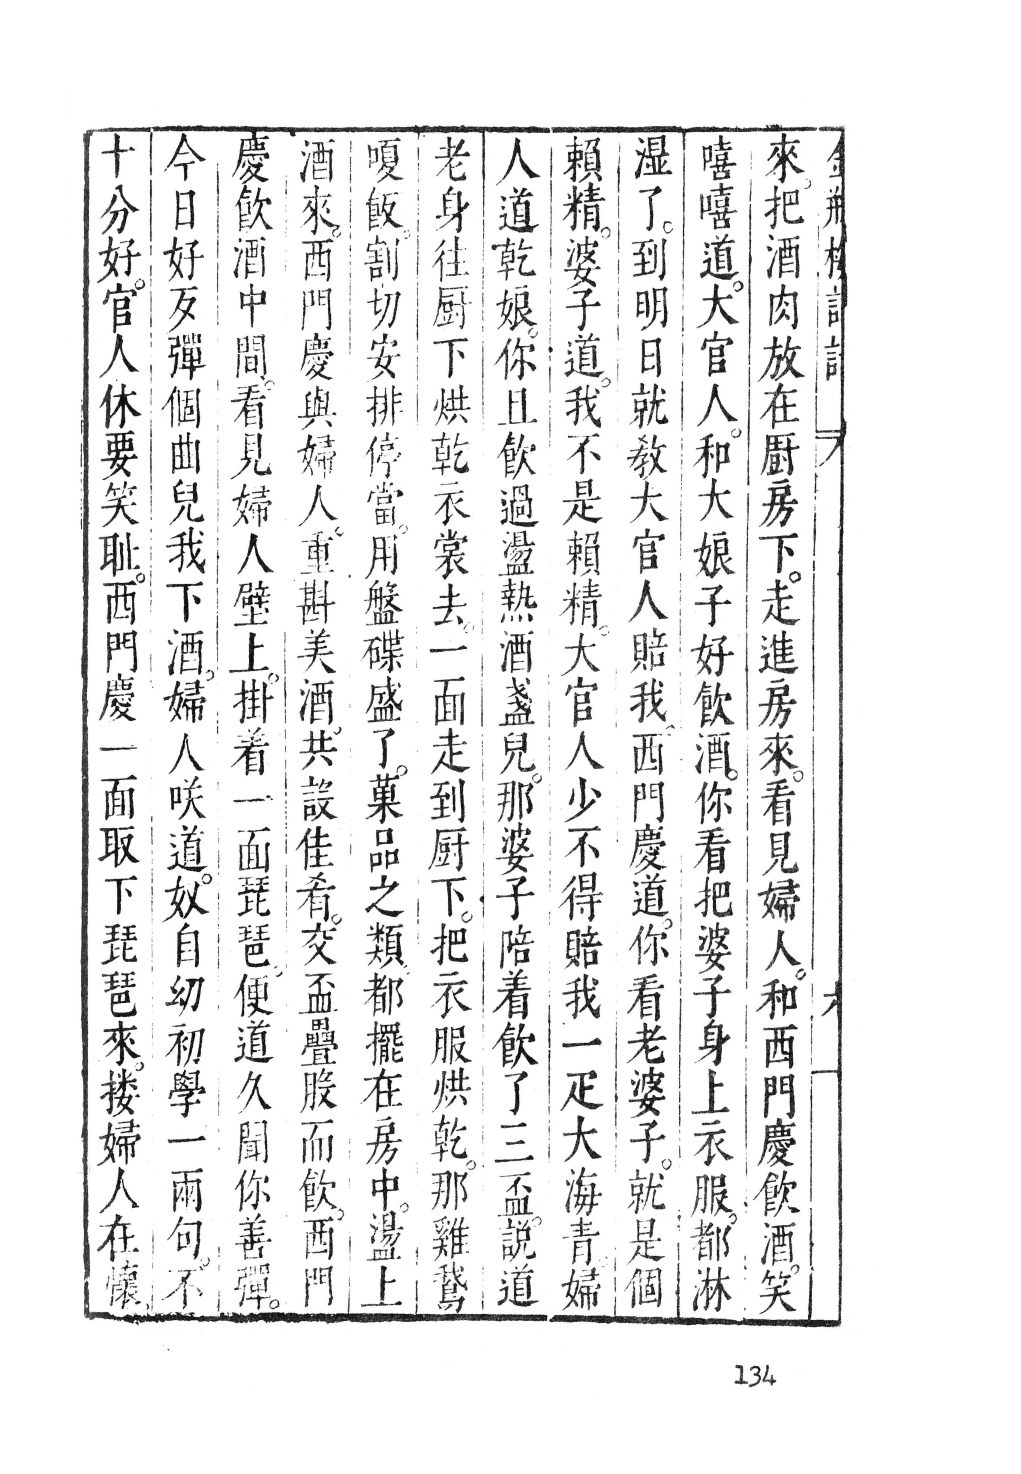 來。把酒肉放在厨房下。走進房來。看見婦人。和西門慶飲酒。笑
嘻嘻道。大官人。和大娘子好飲酒。你看把婆子身上衣服。都淋
湿了。到明日就教大官人賠我。西門慶道。你看老婆子。就是個
賴精。婆子道。我不是賴精。大官人少不得賠我一疋大海青。婦
人道乾娘。你且飲過盪熱酒盞兒。那婆子陪着飲了三盃。説道
老身往厨下烘乾衣裳去。一面走到厨下。把衣服烘乾。那雞鵞
嗄飯。割切安排停當。用盤碟盛了。菓品之類都擺在房中。盪上
酒來。西門慶與婦人。重斟美酒。共設佳肴。交盃疊股而飲。西門
慶飲酒中間。看見婦人壁上。掛着一面琵琶。便道久聞你善彈。
今日好歹彈個曲兒我下酒。婦人咲道。奴自幼初學一兩句。不
十分好。官人休要笑耻。西門慶一面取下琵琶來。摟婦人在懷
134